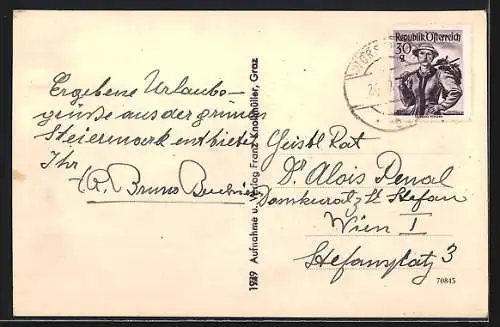 Ergebene Urlaubs-
grüße aus der grünen
Steiermark entbietet
Ihr
Bruno
1949 Aufnahme u. Verlag Franz Knollmüller, Graz
Republik Österreich
30
g
Geistl. Rat
Dr Alois Penal
Domkurat z. St. Stefan
Wien I
Stefansplatz 3
70845